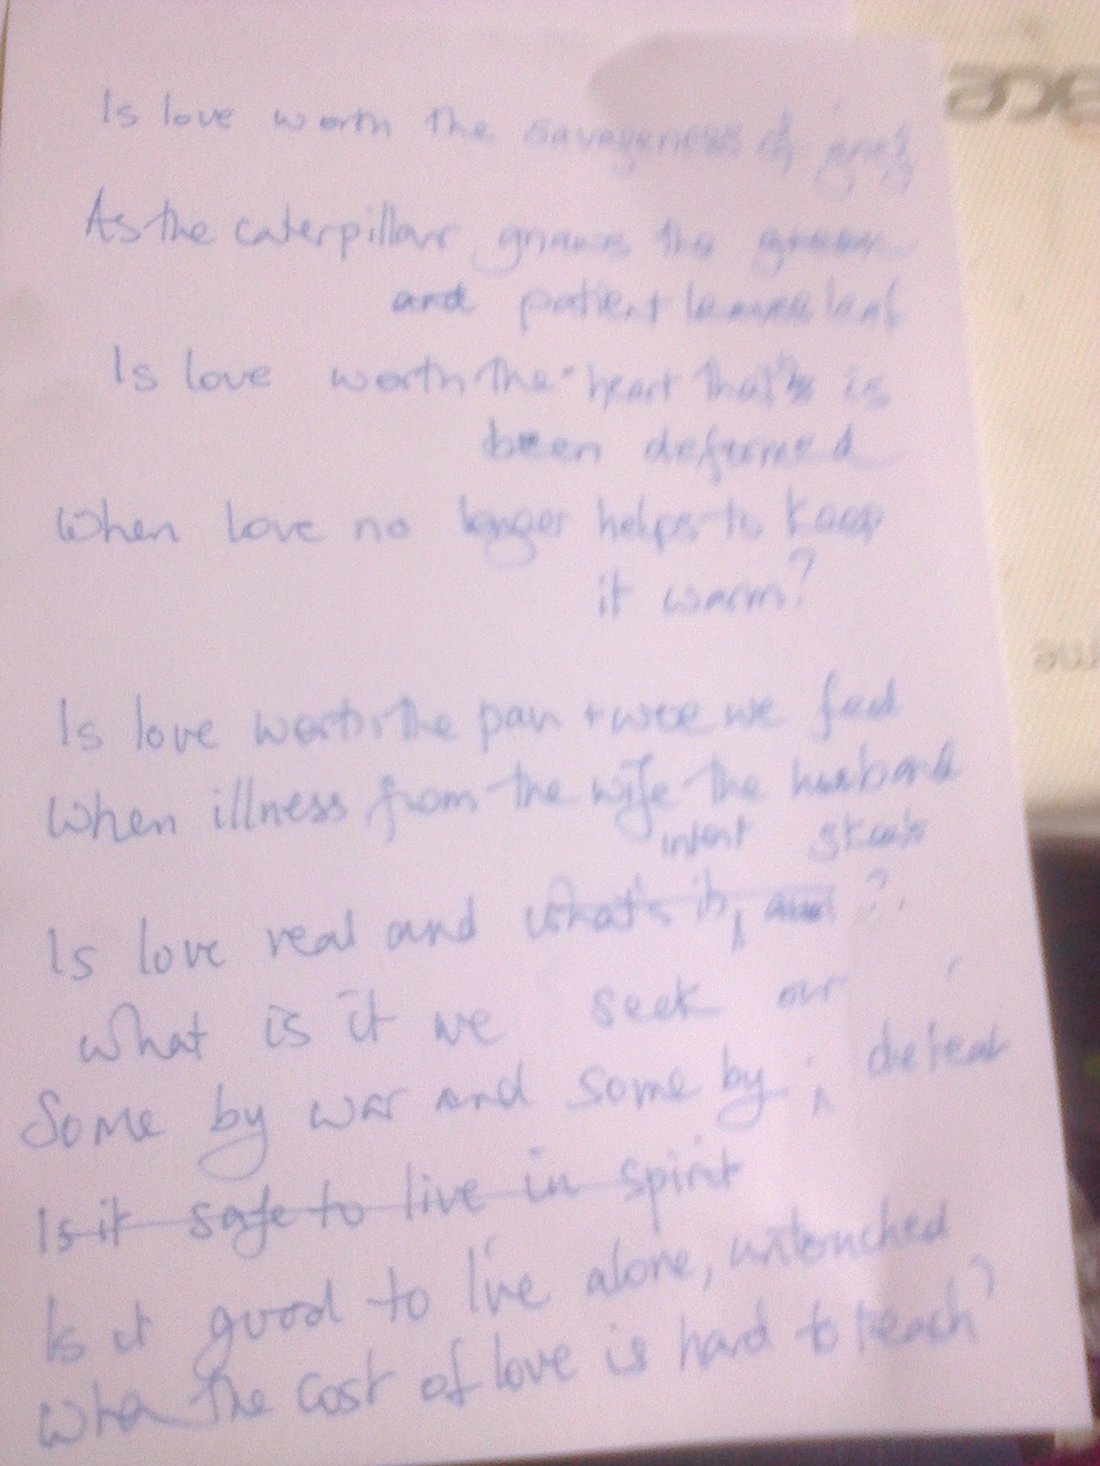 Is love worth the savageness of grief
As the caterpillar gnaws the green
and patient leaves leaf
Is love worth the heart that's is
been deformed
When love no longer helps to keep
it warm?
Is love worth the pain + woe we feel
When illness from the wife the husband
steals
Is love real and what's it, and ?
What is it we seek our
Some by war and some by defeat
Is it safe to live in spirit
Is it good to live alone, untouched
When the cost of love is hard to teach?
acer